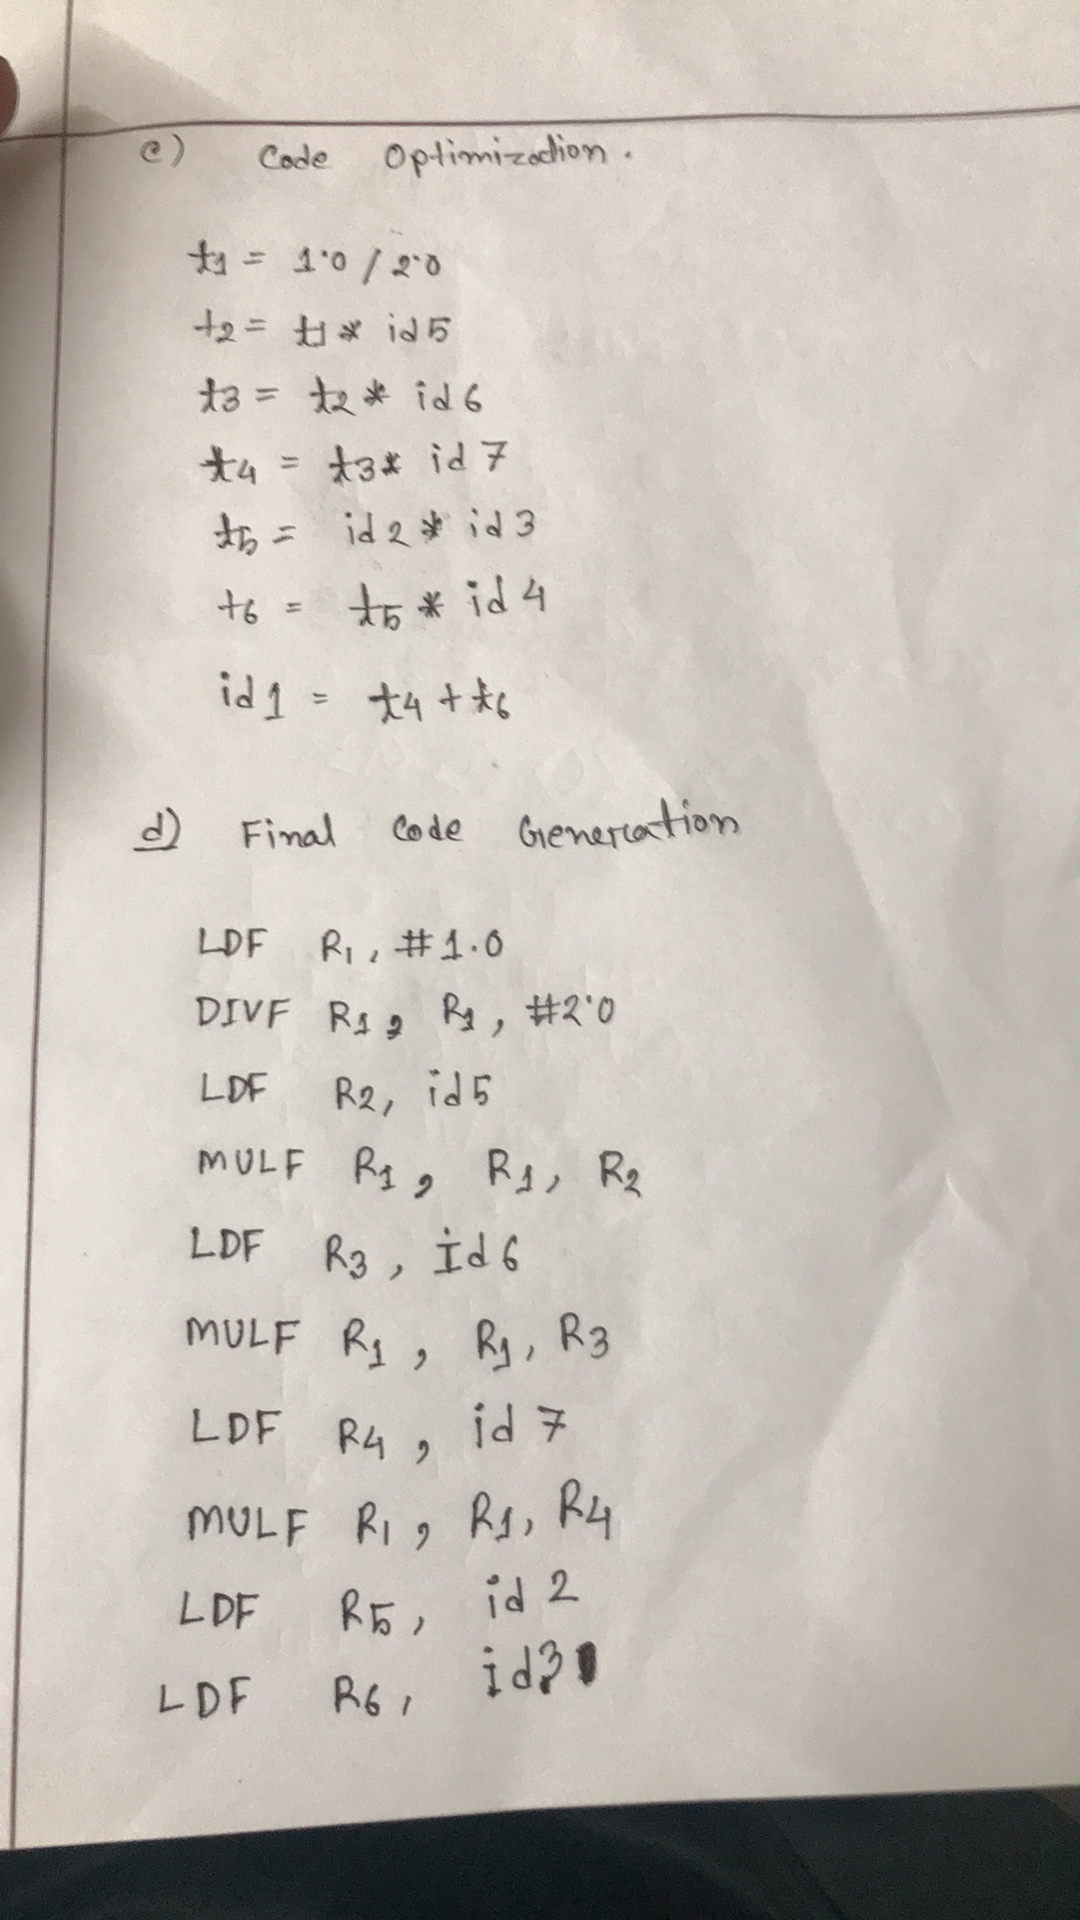 c) Code Optimization.
t1 = 1.0 / 2.0
t2 = t1 * id5
t3 = t2 * id6
t4 = t3 * id 7
t5 = id 2 * id 3
t6 = t5 * id 4
id 1 = t4 + t6
d) Final Code Generation
LDF R1, #1.0
DIVF R1, R1, #2.0
LDF R2, id5
MULF R1, R1, R2
LDF R3, Id6
MULF R1, R1, R3
LDF R4, id 7
MULF R1, R1, R4
LDF R5, id 2
LDF R6, id3